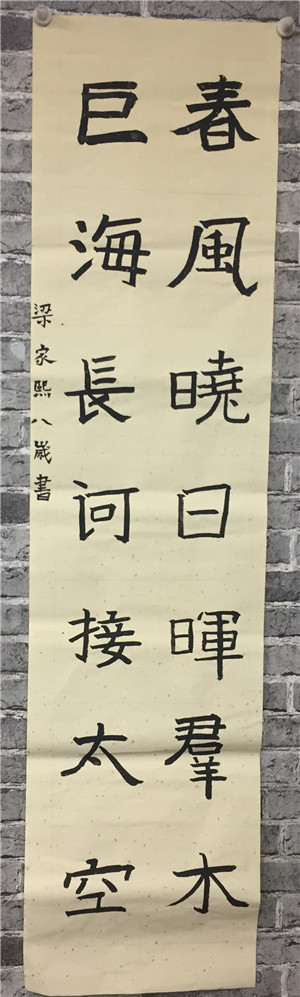 春風曉日暉羣木
巨海長河接太空
梁家熙八歲書